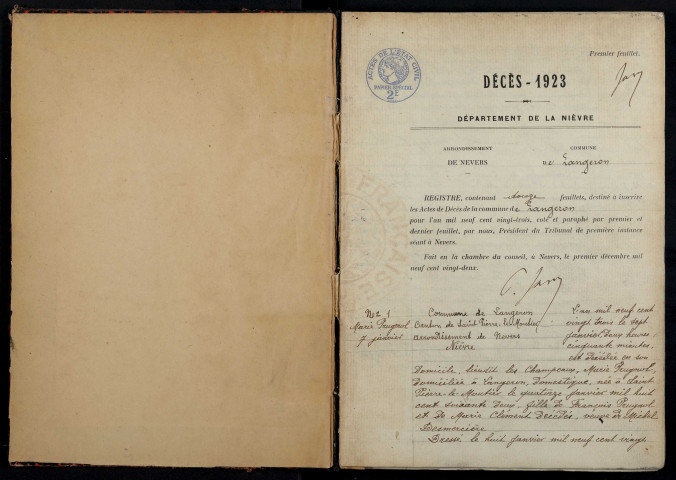 Premier feuillet.
ACTES DE L'ÉTAT CIVIL
PAPIER SPÉCIAL
2F
DÉCÈS - 1923
DÉPARTEMENT DE LA NIÈVRE
ARRONDISSEMENT
DE NEVERS
COMMUNE
de Langeron
REGISTRE, contenant douze feuillets, destiné à inscrire
les Actes de Décès de la commune de Langeron
pour l'an mil neuf cent vingt-trois, coté et paraphé par premier et
dernier feuillet, par nous, Président du Tribunal de première instance
séant à Nevers.
Fait en la chambre du conseil, à Nevers, le premier décembre mil
neuf cent vingt-deux.
No 1
Marie Peugnot
7 janvier
Commune de Langeron
Canton de Saint Pierre-le-Moutier
arrondissement de Nevers
Nièvre
L'an mil neuf cent
vingt trois le sept
janvier deux heures
cinquante minutes,
est décédée en son
domicile, lieudit les Champeaux, Marie Peugnot,
domiciliée à Langeron, domestique, née à Saint
Pierre-le-Moutier le quatorze janvier mil huit
cent soixante deux, fille de François Peugnot
et de Marie Clément décédés, veuve de Michel
Desmercière
Dressé le huit janvier mil neuf cent vingt